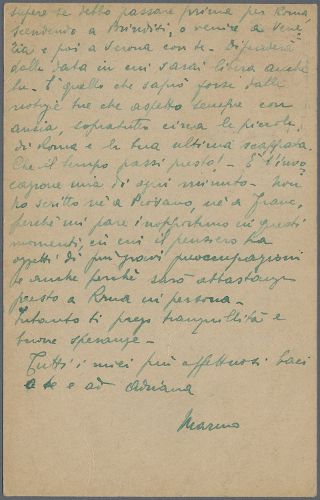 sapere se debbo passare prima per Roma,
scendendo a Brindisi, o venire a Vene-
zia e poi a Verona con te. Dipenderà
dalla data in cui sarai libera anche
tu. È quello che saprò forse dalle
notizie tue che aspetto sempre con
ansia, sopratutto circa le piccole
di Roma e la tua ultima scappata.
Che il tempo passi presto! - È l'invo-
cazione mia di ogni minuto. Non
ho scritto nè a , nè a ,
perchè mi pare inopportuno in questi
momenti, in cui il pensiero ha
oggetti di più gravi preoccupazioni
e anche perchè sarò abbastanza
presto a Roma in persona.
Intanto ti prego tranquillità e
buone speranze -
Tutti i miei più affettuosi baci
a te e ad Adriana
Marino